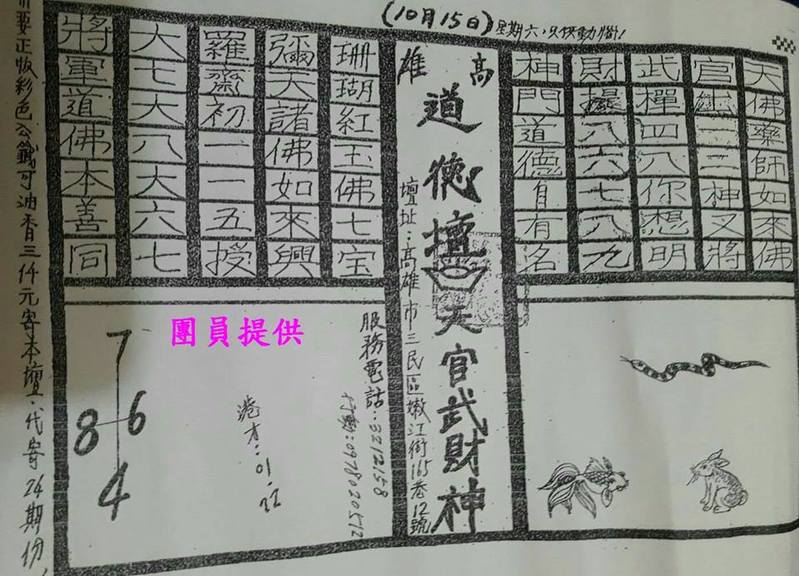 (10月15日)星期六,只供動腦!
高雄
道德壇
天官武財神
壇址:高雄市三民區嫩江街165巷12號
天佛藥師如來佛
官二二神又將
武禪四八你想明
財八六七八九
神門道德自有名
珊瑚紅玉佛七宝
彌天諸佛如來興
羅齋初一一五授
大七大八大六七
將軍道佛本善同
服務電話:3212158
行動:0978020512
港才:01.22
團員提供
7
8 6
4
要正版彩色公籤可油香三仟元寄本壇.代寄24期份!